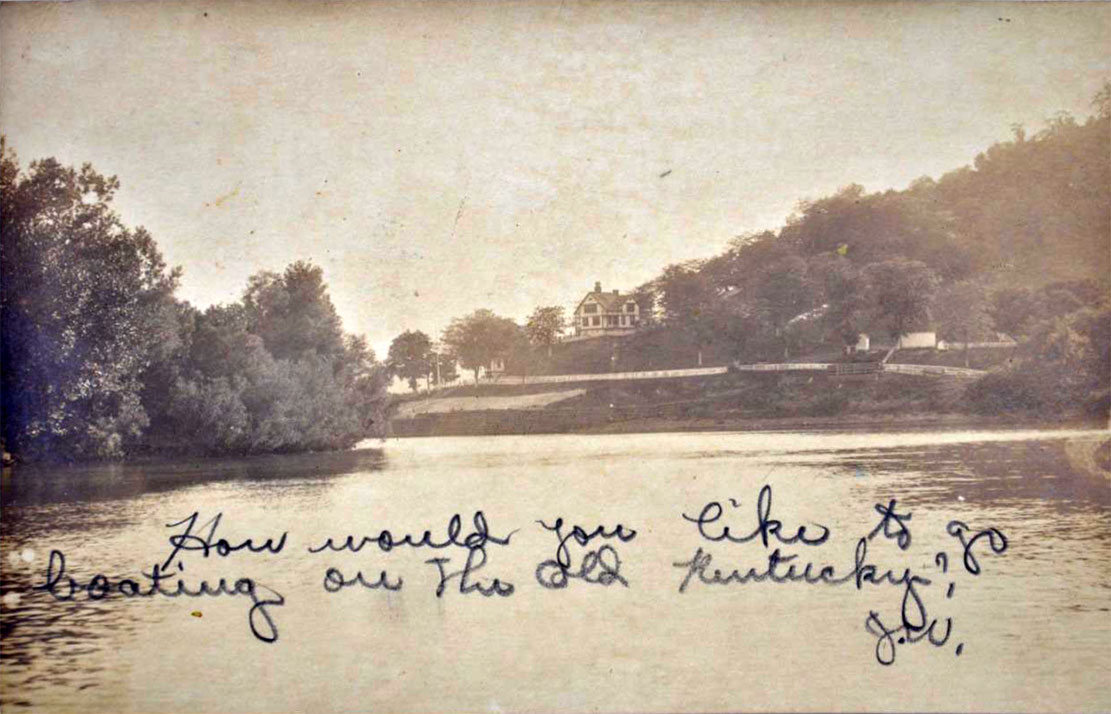 How would you like to go
boating on The Old Kentucky?,
J.W.